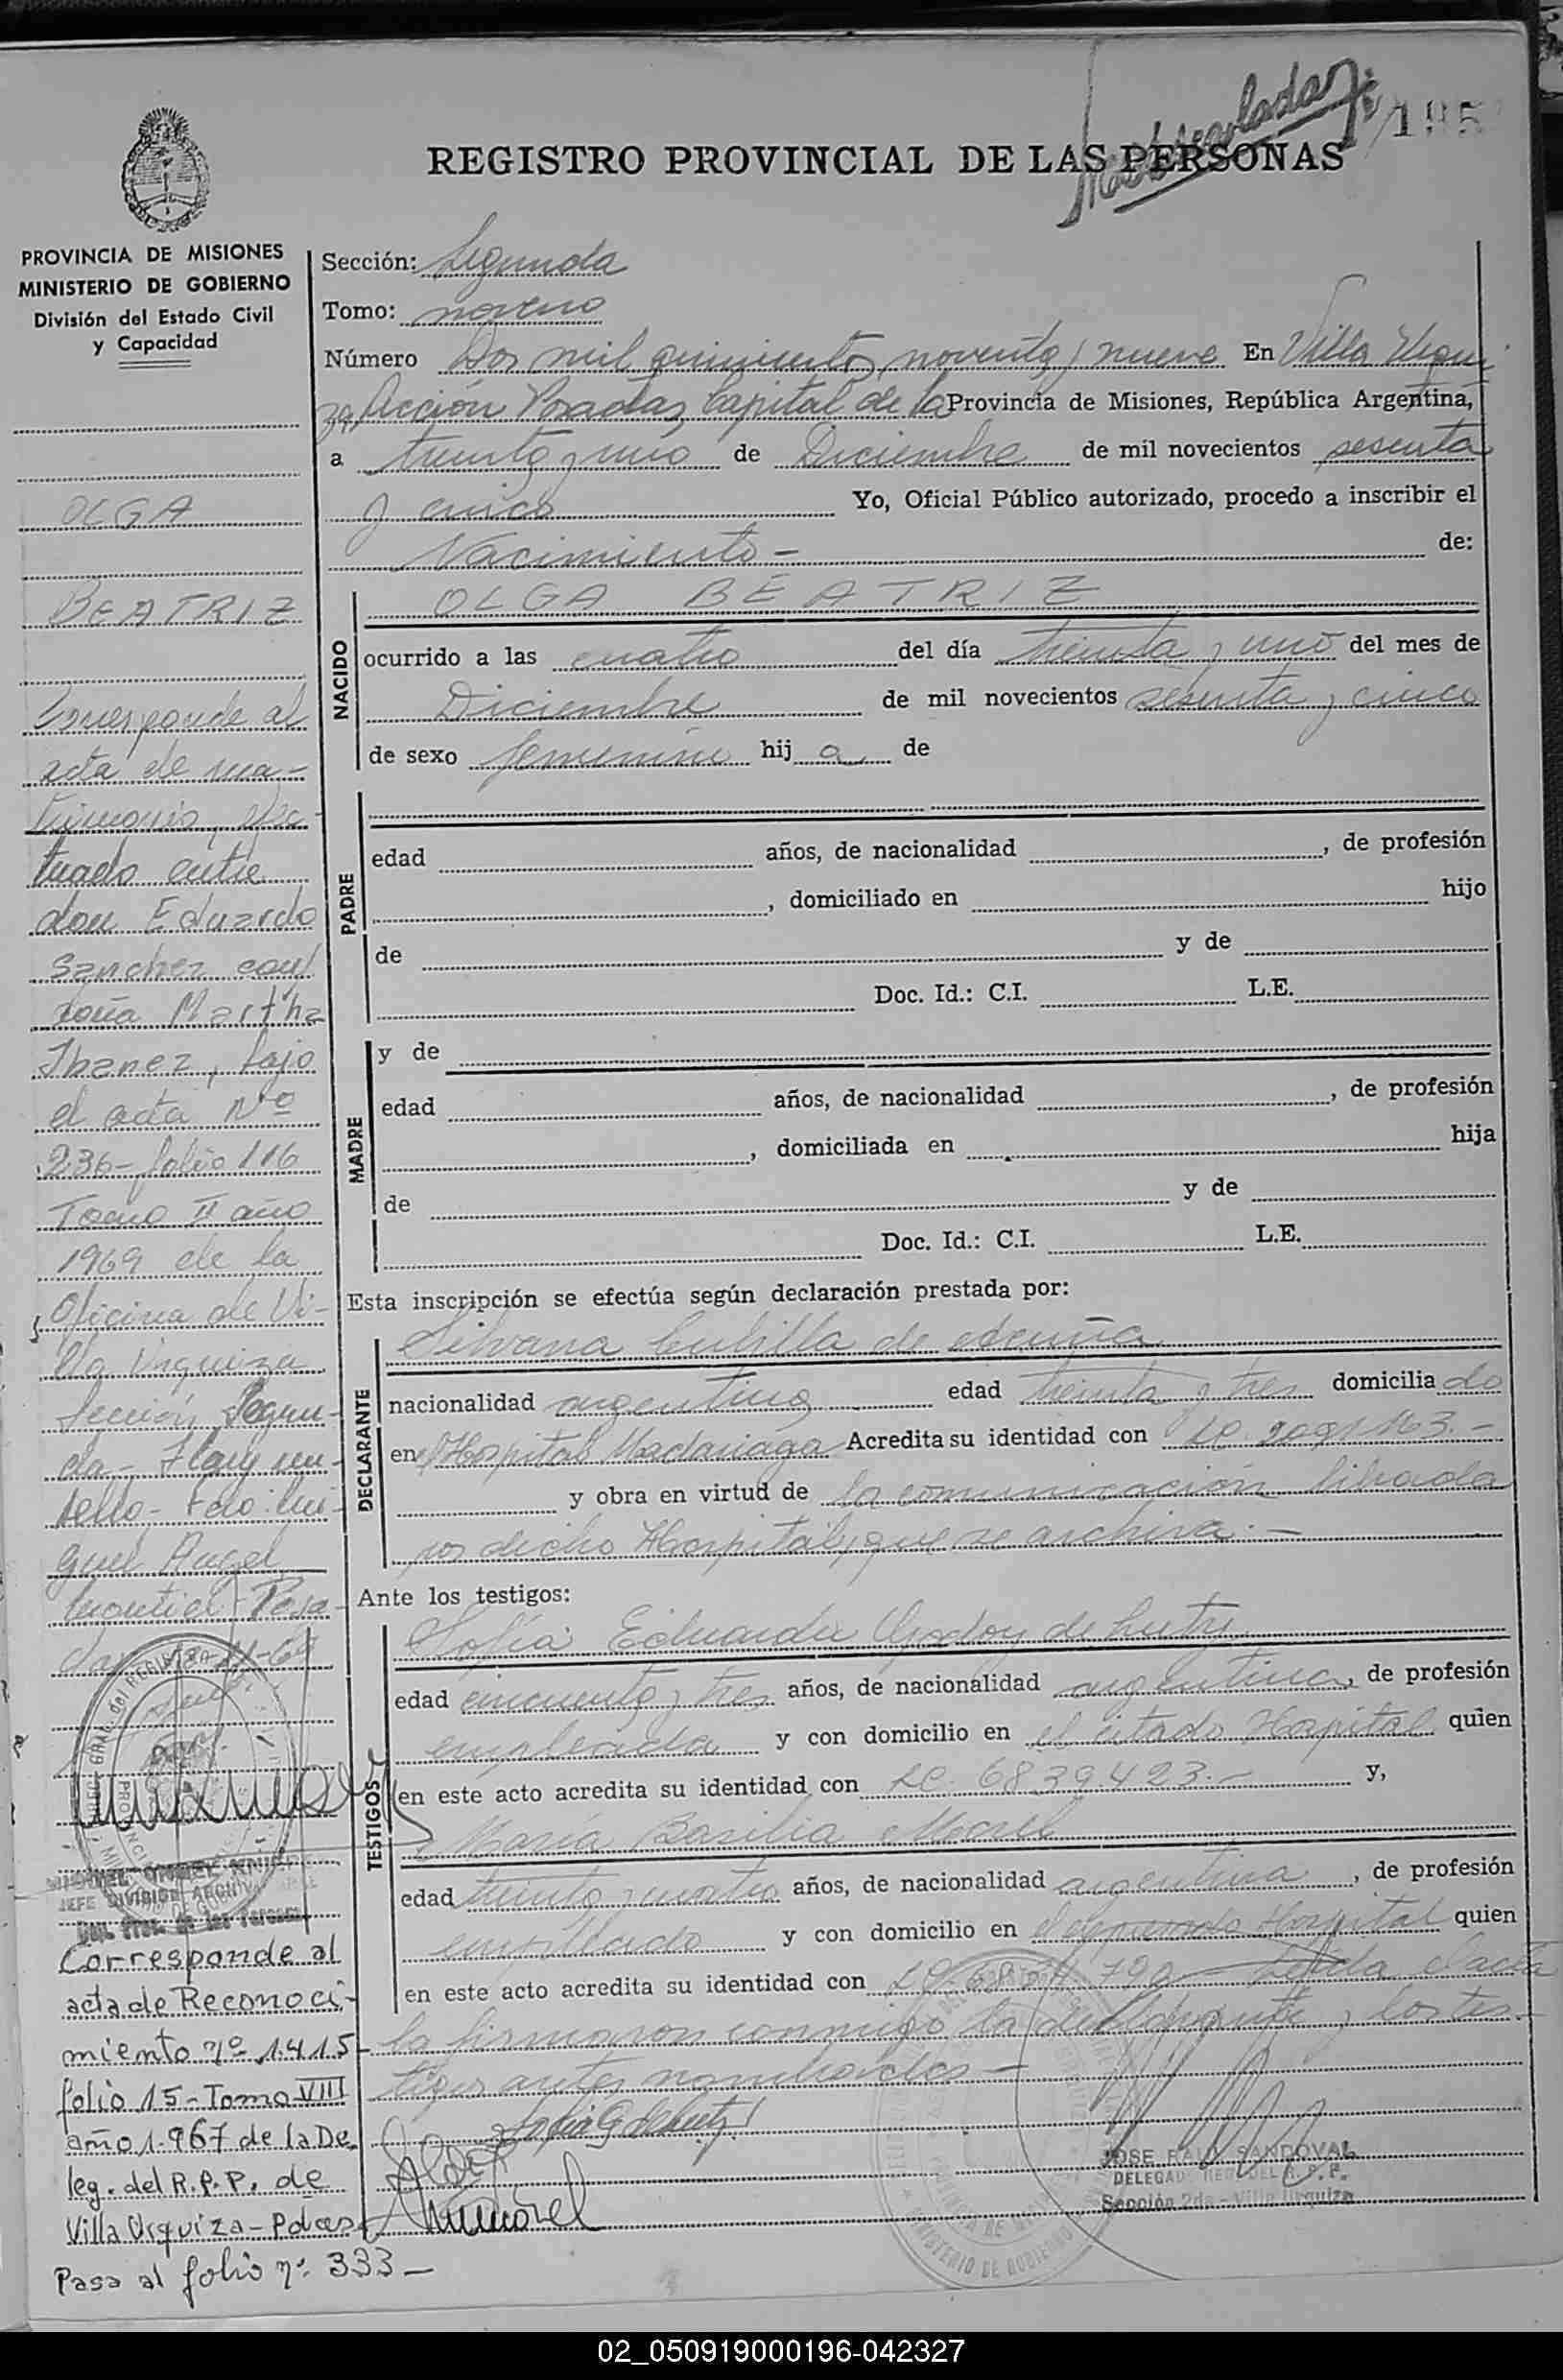 Matrimoniadas
195
REGISTRO PROVINCIAL DE LAS PERSONAS
PROVINCIA DE MISIONES
MINISTERIO DE GOBIERNO
División del Estado Civil
y Capacidad
OLGA
BEATRIZ
Corresponde al
acta de ma-
trimonio, efec
tuado entre
don Eduardo
Sanchez con
doña Martha
Ibanez, bajo
el acta Nº
236- folio 116
Tomo II año
1969 de la
Oficina de Vi-
lla Urquiza
Sección Segun-
da- Hay un
sello- Fdo: Mi-
guel Angel
Montiel Posa-
das
JEFE DIVISION ARCHIVO
Corresponde al
acta de Reconoci-
miento nº 1415-
folio 15-Tomo VIII
año 1.967 de la De
leg. del R.P.P. de
Villa Urquiza-Podas
Pasa al folio nº: 333-
Sección: Segunda
Tomo: noveno
Número Dos mil quinientos noventa y nueve En Villa Urqui
za, Sección Posadas, Capital de la Provincia de Misiones, República Argentina,
a treinta y uno de Diciembre de mil novecientos sesenta
y cinco Yo, Oficial Público autorizado, procedo a inscribir el
Nacimiento- de:
NACIDO
OLGA BEATRIZ
ocurrido a las cuatro del día treinta y uno del mes de
Diciembre de mil novecientos sesenta y cinco
de sexo femenino hij a de
PADRE
edad años, de nacionalidad , de profesión
, domiciliado en hijo
de y de
Doc. Id.: C.I. L.E.
MADRE
y de
edad años, de nacionalidad , de profesión
, domiciliada en hija
de y de
Doc. Id.: C.I. L.E.
Esta inscripción se efectúa según declaración prestada por:
DECLARANTE
Silvana Cubilla de
nacionalidad argentina edad treinta y tres domicilia do
en el Hospital Madariaga Acredita su identidad con LC.
y obra en virtud de la comunicación librada
por dicho Hospital, que se archiva.-
Ante los testigos:
TESTIGOS
Sofía Eduarda Godoy de
edad cincuenta y tres años, de nacionalidad argentina, de profesión
empleada y con domicilio en el citado Hospital quien
en este acto acredita su identidad con LC. 6839.423.- y,
María Basilia
edad treinta y cuatro años, de nacionalidad argentina , de profesión
empleada y con domicilio en el expresado Hospital quien
en este acto acredita su identidad con LC. Leída el acta
la firmaron conmigo la declarante y los tes-
tigos antes nombrados-
JOSE RAUL SANDOVAL
DELEGADO REG. DEL R. P. P.
Sección 2da - Villa Urquiza
02_050919000196-042327